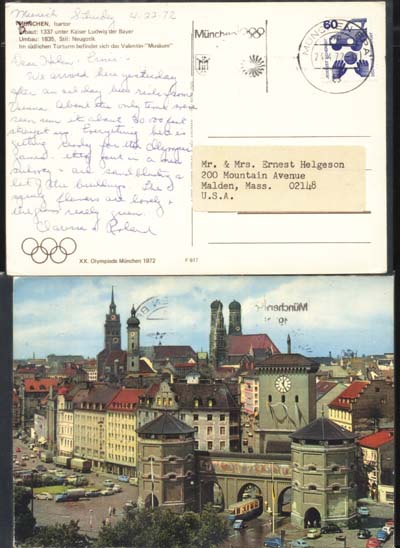 Munich Saturday 4-22-72
MÜNCHEN, Isartor
Erbaut: 1337 unter Kaiser Ludwig der Bayer
Umbau: 1835, Stil: Neugotik
Im südlichen Turturm befindet sich das Valentin-"Musäum"
Dear Helen & Ernie:-
We arrived here yesterday
after an all day bus ride from
Vienna. About the only time we've
seen sun it about 30,000 feet
straight up. Everything here is
getting ready for the Olympic
games. They put in a new
subway & are sandblasting a
lot of the buildings. The
spring flowers are lovely &
the grass really green.
Clarissa & Roland
XX. Olympiade München 1972
F 617
München
1972
60
MÜNCHEN
Mr. & Mrs. Ernest Helgeson
200 Mountain Avenue
Malden, Mass. 02148
U.S.A.
München